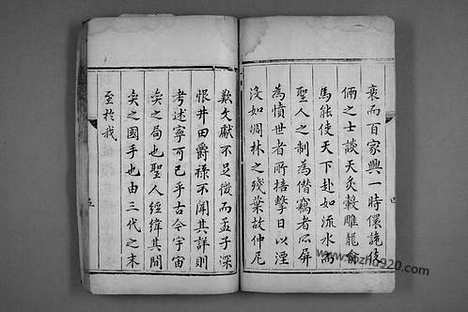 衰而百家興一時儇詭伎
倆之士談天炙轂雕龍侖
馬能使天下赴如流水而
聖人之制為僭竊者所屏
為憤世者所掊擊日以湮
沒如凋林之殘葉故仲尼
歎文獻不足徵而孟子深
恨井田爵祿不聞其詳則
考述寧可已乎古今宇宙
奕之局也聖人經緯其間
奕之國手也由三代之末
至於我